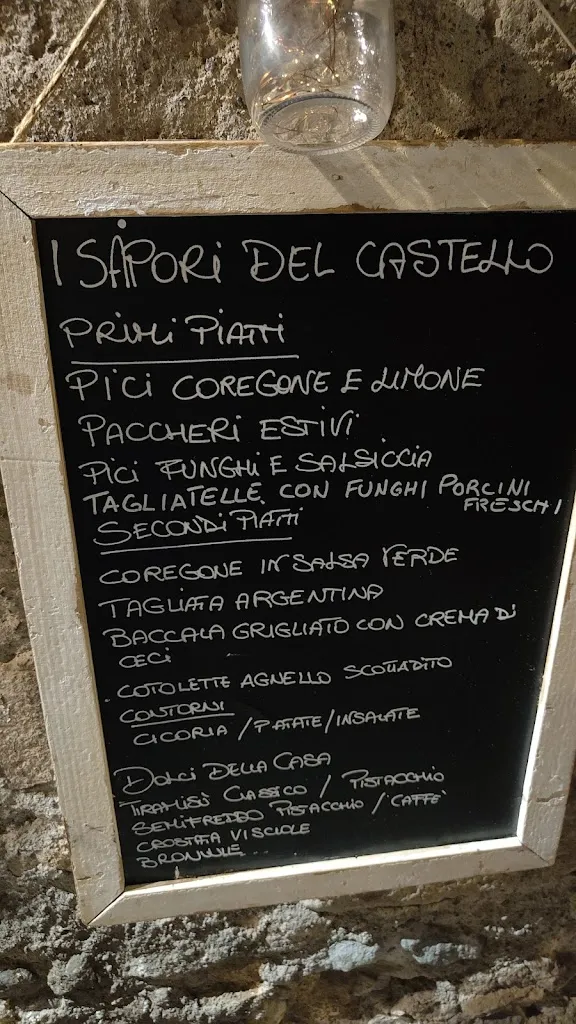 I SAPORI DEL CASTELLO
PRIMI PIATTI
PICI COREGONE E LIMONE
PACCHERI ESTIVI
PICI FUNGHI E SALSICCIA
TAGLIATELLE CON FUNGHI PORCINI
FRESCHI
SECONDI PIATTI
COREGONE IN SALSA VERDE
TAGLIATA ARGENTINA
BACCALA GRIGLIATO CON CREMA DI
CECI
COTOLETTE AGNELLO SCOTTADITO
CONTORNI
CICORIA / PATATE / INSALATE
DOLCI DELLA CASA
TIRAMISÙ CLASSICO / PISTACCHIO
SEMIFREDDO PISTACCHIO / CAFFÈ
CROSTATA VISCIOLE